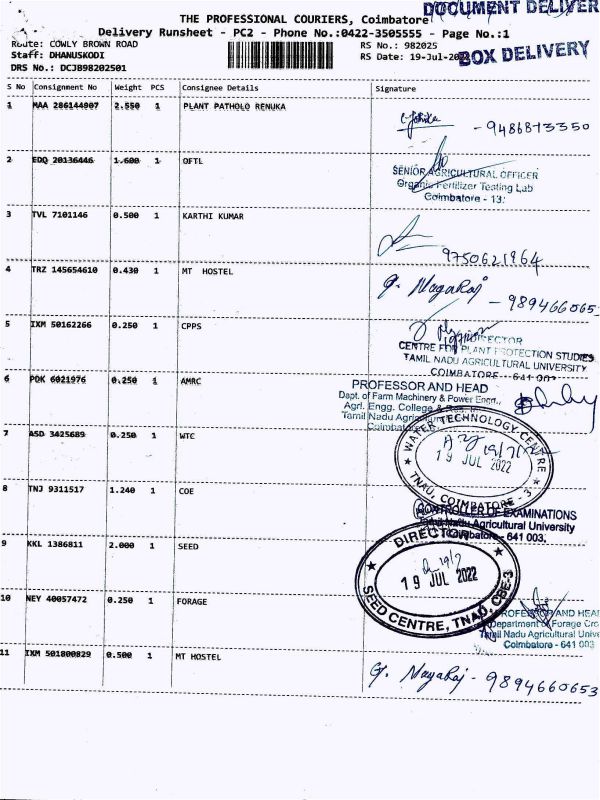 DOCUMENT DELIVER
THE PROFESSIONAL COURIERS, Coimbatore
Delivery Runsheet - PC2 - Phone No.:0422-3505555 - Page No.:1
Route: COWLY BROWN ROAD
RS No.: 982025
BOX DELIVERY
Staff: DHANUSKODI
RS Date: 19-Jul-2022
DRS No.: DCJB98202501
S No Consignment No Weight PCS Consignee Details Signature
1 MAA 286144907 2.550 1 PLANT PATHOLO RENUKA
- 9486873350
2 EDQ 20136446 1.600 1 OFTL
SENIOR AGRICULTURAL OFFICER
Organic Fertilizer Testing Lab
Coimbatore - 13.
3 TVL 7101146 0.500 1 KARTHI KUMAR
9750621964
4 TRZ 145654610 0.430 1 MT HOSTEL
G. Nagaraj - 989466065
5 IXM 50162266 0.250 1 CPPS
DIRECTOR
CENTRE FOR PLANT PROTECTION STUDIES
TAMIL NADU AGRICULTURAL UNIVERSITY
COIMBATORE - 641 003
6 PDK 6021976 0.250 1 AMRC
PROFESSOR AND HEAD
Dept. of Farm Machinery & Power Engg.,
Agrl. Engg. College &
Tamil Nadu
Coimbatore
7 ASD 3425689 0.250 1 WTC
WATER TECHNOLOGY CENTRE
19/7/22
19 JUL 2022
TNAU, COIMBATORE - 3
8 TNJ 9311517 1.240 1 COE
CONTROLLER OF EXAMINATIONS
Tamil Nadu Agricultural University
Coimbatore - 641 003.
9 KKL 1386811 2.000 1 SEED
DIRECTOR
19/7
19 JUL 2022
SEED CENTRE, TNAU, CBE-3
10 NEY 40057472 0.250 1 FORAGE
PROFESSOR AND HEAD
Department of Forage Cro
Tamil Nadu Agricultural Unive
Coimbatore - 641 003
11 IXM 501800829 0.500 1 MT HOSTEL
G. Nagaraj - 9894660653